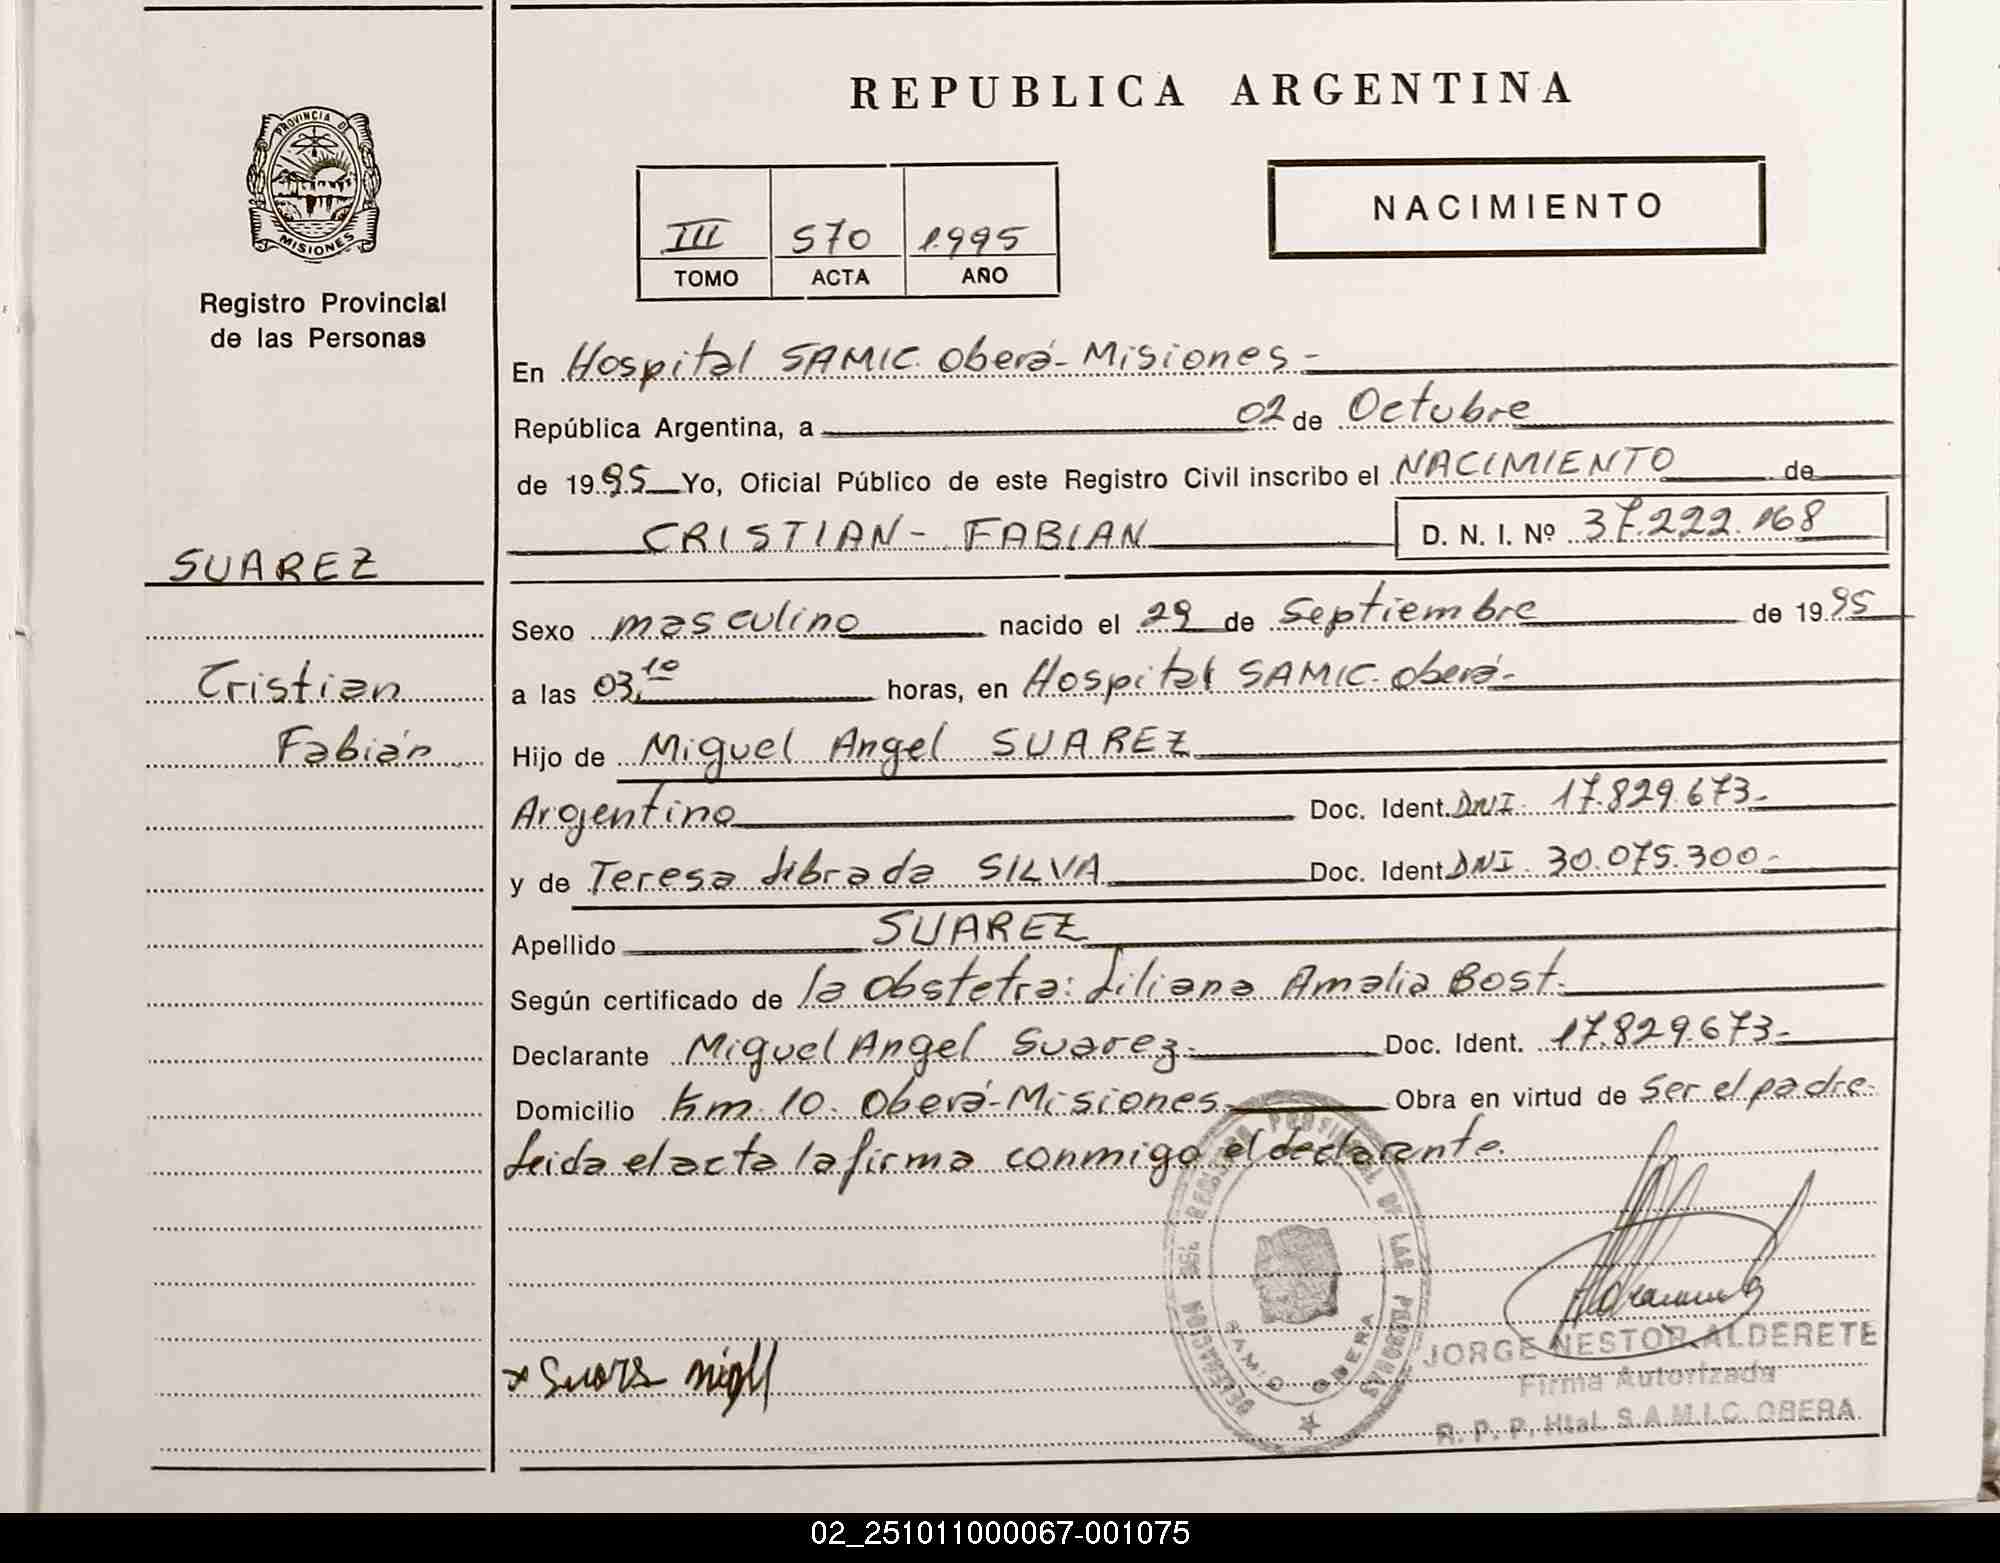 REPUBLICA ARGENTINA
PROVINCIA DE
MISIONES
Registro Provincial
de las Personas
III 570 1995
TOMO ACTA AÑO
NACIMIENTO
En Hospital SAMIC. Oberá-Misiones-
República Argentina, a 02 de Octubre
de 1995 Yo, Oficial Público de este Registro Civil inscribo el NACIMIENTO de
CRISTIAN- FABIAN D. N. I. Nº 37.222.168
SUAREZ
Cristian
Fabián
Sexo masculino nacido el 29 de Septiembre de 1995
a las 03,10 horas, en Hospital SAMIC. Oberá-
Hijo de Miguel Angel SUAREZ
Argentino Doc. Ident. DNI. 17.829.673-
y de Teresa Librada SILVA Doc. Ident. DNI. 30.075.300-
Apellido SUAREZ
Según certificado de la Obstetra: Liliana Amalia Bost.
Declarante Miguel Angel Suarez- Doc. Ident. 17.829.673-
Domicilio Km. 10. Oberá-Misiones Obra en virtud de Ser el padre.
Leida el acta la firma conmigo el declarante.
DELEGACION DEL REGISTRO PROVINCIAL DE LAS PERSONAS
SAMIC OBERA
JORGE NESTOR ALDERETE
Firma Autorizada
R. P. P. Htal. S.A.M.I.C. OBERA
02_251011000067-001075